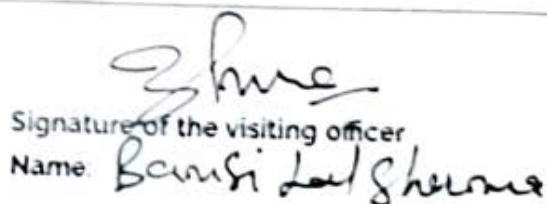 Signature of the visiting officer
Name: Bansi Lal Sharma